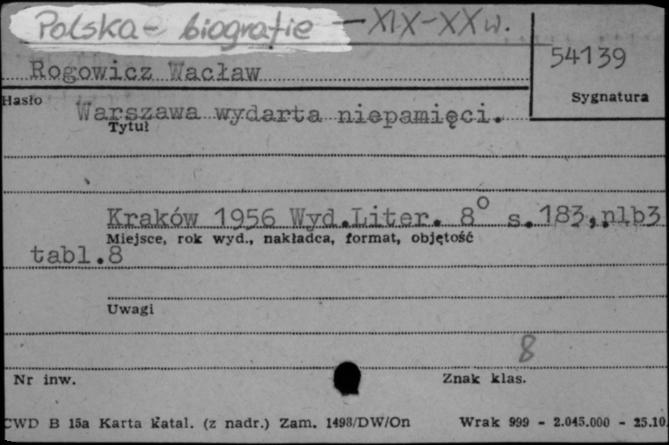 Polska - biografie - XIX-XX w.
54139
Rogowicz Wacław
Hasło
Sygnatura
Warszawa wydarta niepamięci.
Tytuł
Kraków 1956 Wyd.Liter. 8° s.183,nlb3
Miejsce, rok wyd., nakładca, format, objętość
tabl.8
Uwagi
8
Nr inw.
Znak klas.
CWD B 15a Karta katal. (z nadr.) Zam. 1498/DW/On Wrak 999 - 2.045.000 - 25.10